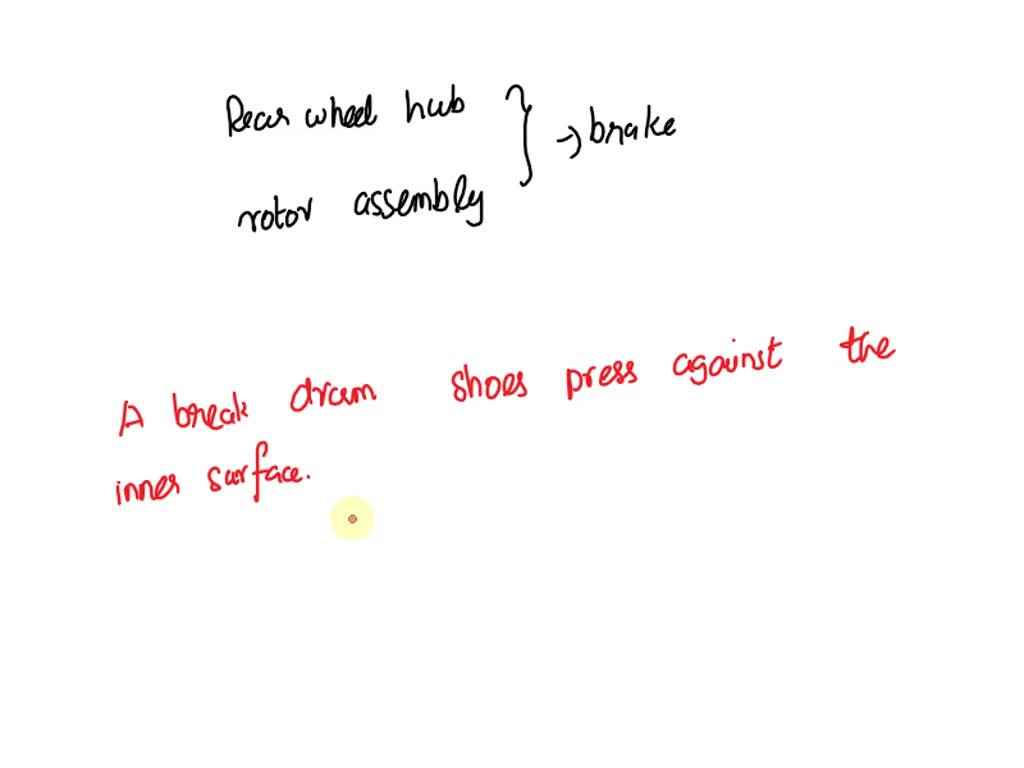 Rear wheel hub
rotor assembly
} → brake
A break drum shoes press against the
inner surface.